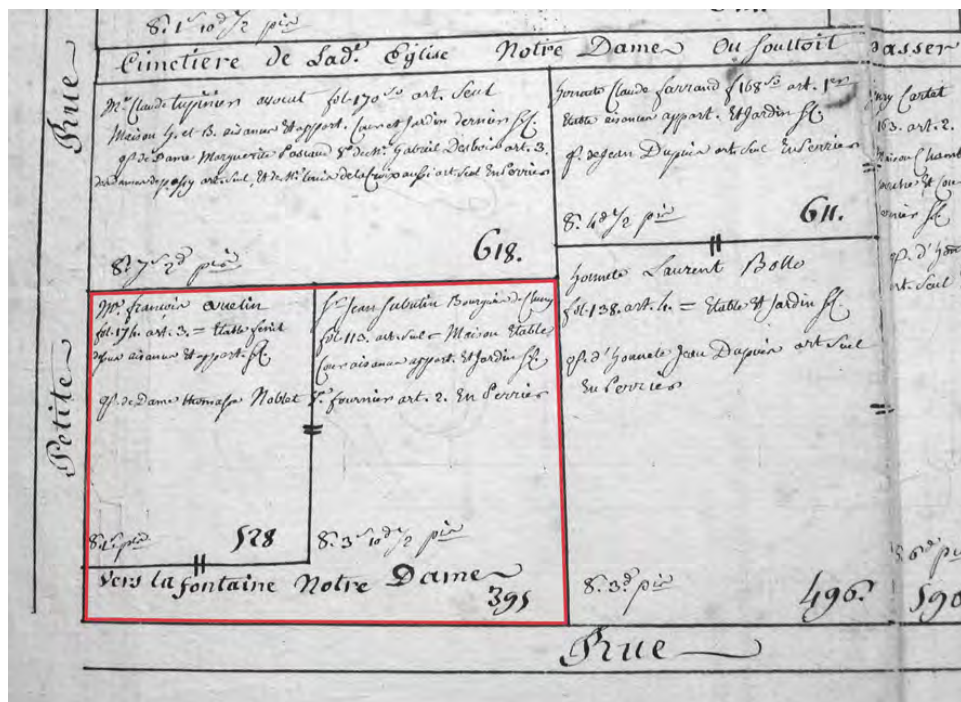 S. 1ˢ 10ᵈ 1/2 pⁱᵉ
Cimetiere de Ladᵗᵉ Eglise Notre Dame Ou Souttoit passer
Rue
Petite
Mʳ Claude tupinier avocat fol. 170 vᵒ art. Seul
Maison h. et B. aisance et appart. Cour et Jardin dernier
qᵗ. de Dame Marguerite Pascaud Vᵉ de Mʳ. Gabriel Desbois art. 3.
art. Seul, Et de Mʳ. Louis de la Croix aussi art. Seul En Perrier
S. 7ˢ 2ᵈ pⁱᵉ
618.
honnete Claude farrand f. 168 vᵒ art. 1ᵉʳ
Etable aisance appart. Et Jardin
qᵗ. de Jean Dupuis art. Seul En Perrier
S. 4ᵈ 1/2 pⁱᵉ
611.
Cartet
163. art. 2.
Maison
Mʳ. francois avelin
fol. 174. art. 3. = Etable
aisance et appart.
qᵗ. de Dame thomasse Noblet
528
Sʳ Jean Sabatin Bourgeois de Cluny
fol. 113. art. Seul = Maison Etable
Cour aisance appart. Et Jardin
fournier art. 2. En Perrier
S. 3ˢ 10ᵈ 1/2 pⁱᵉ
Vers la fontaine Notre Dame
395
honnete Laurent Bollo
fol. 138. art. 4. = Etable Et Jardin
qᵗ. d'honnete Jean Dupuis art Seul
En Perrier
S. 3ᵈ pⁱᵉ
496.
S. 6ᵈ pⁱᵉ
590
Rue